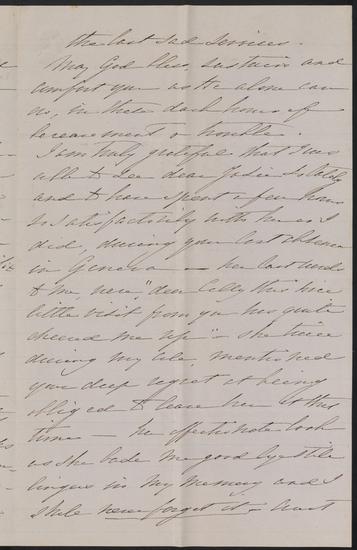 the last sad services.
May God bless, sustain and
comfort you as He alone can
us, in these dark hours of
bereavement & trouble.
I am truly grateful that I was
able to see dear Josie so lately
and to have spent a few hours
so satisfactorily with her as I
did, during your last absence
in Geneva — her last words
to me, were, "dear Cally this nice
little visit from you has quite
cheered me up" — she twice
during my stay mentioned
your deep regret at being
obliged to leave her at that
time — the affectionate look
as she bade me good bye still
lingers in my memory and I
shall never forget it —